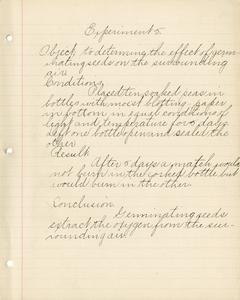 Experiment 5.
Object: to determine the effect of germ-
inating seeds on the surrounding
air.
Conditions
Placed ten soaked peas in
bottles with moist blotting-paper
in bottom in equal conditions of
light and temperature for 3 days
left one bottle open and sealed the
other
Result
After 3 days a match would
not burn in the corked bottle but
would burn in the other.
Conclusion
Germinating seeds
extract the oxygen from the sur-
rounding air.